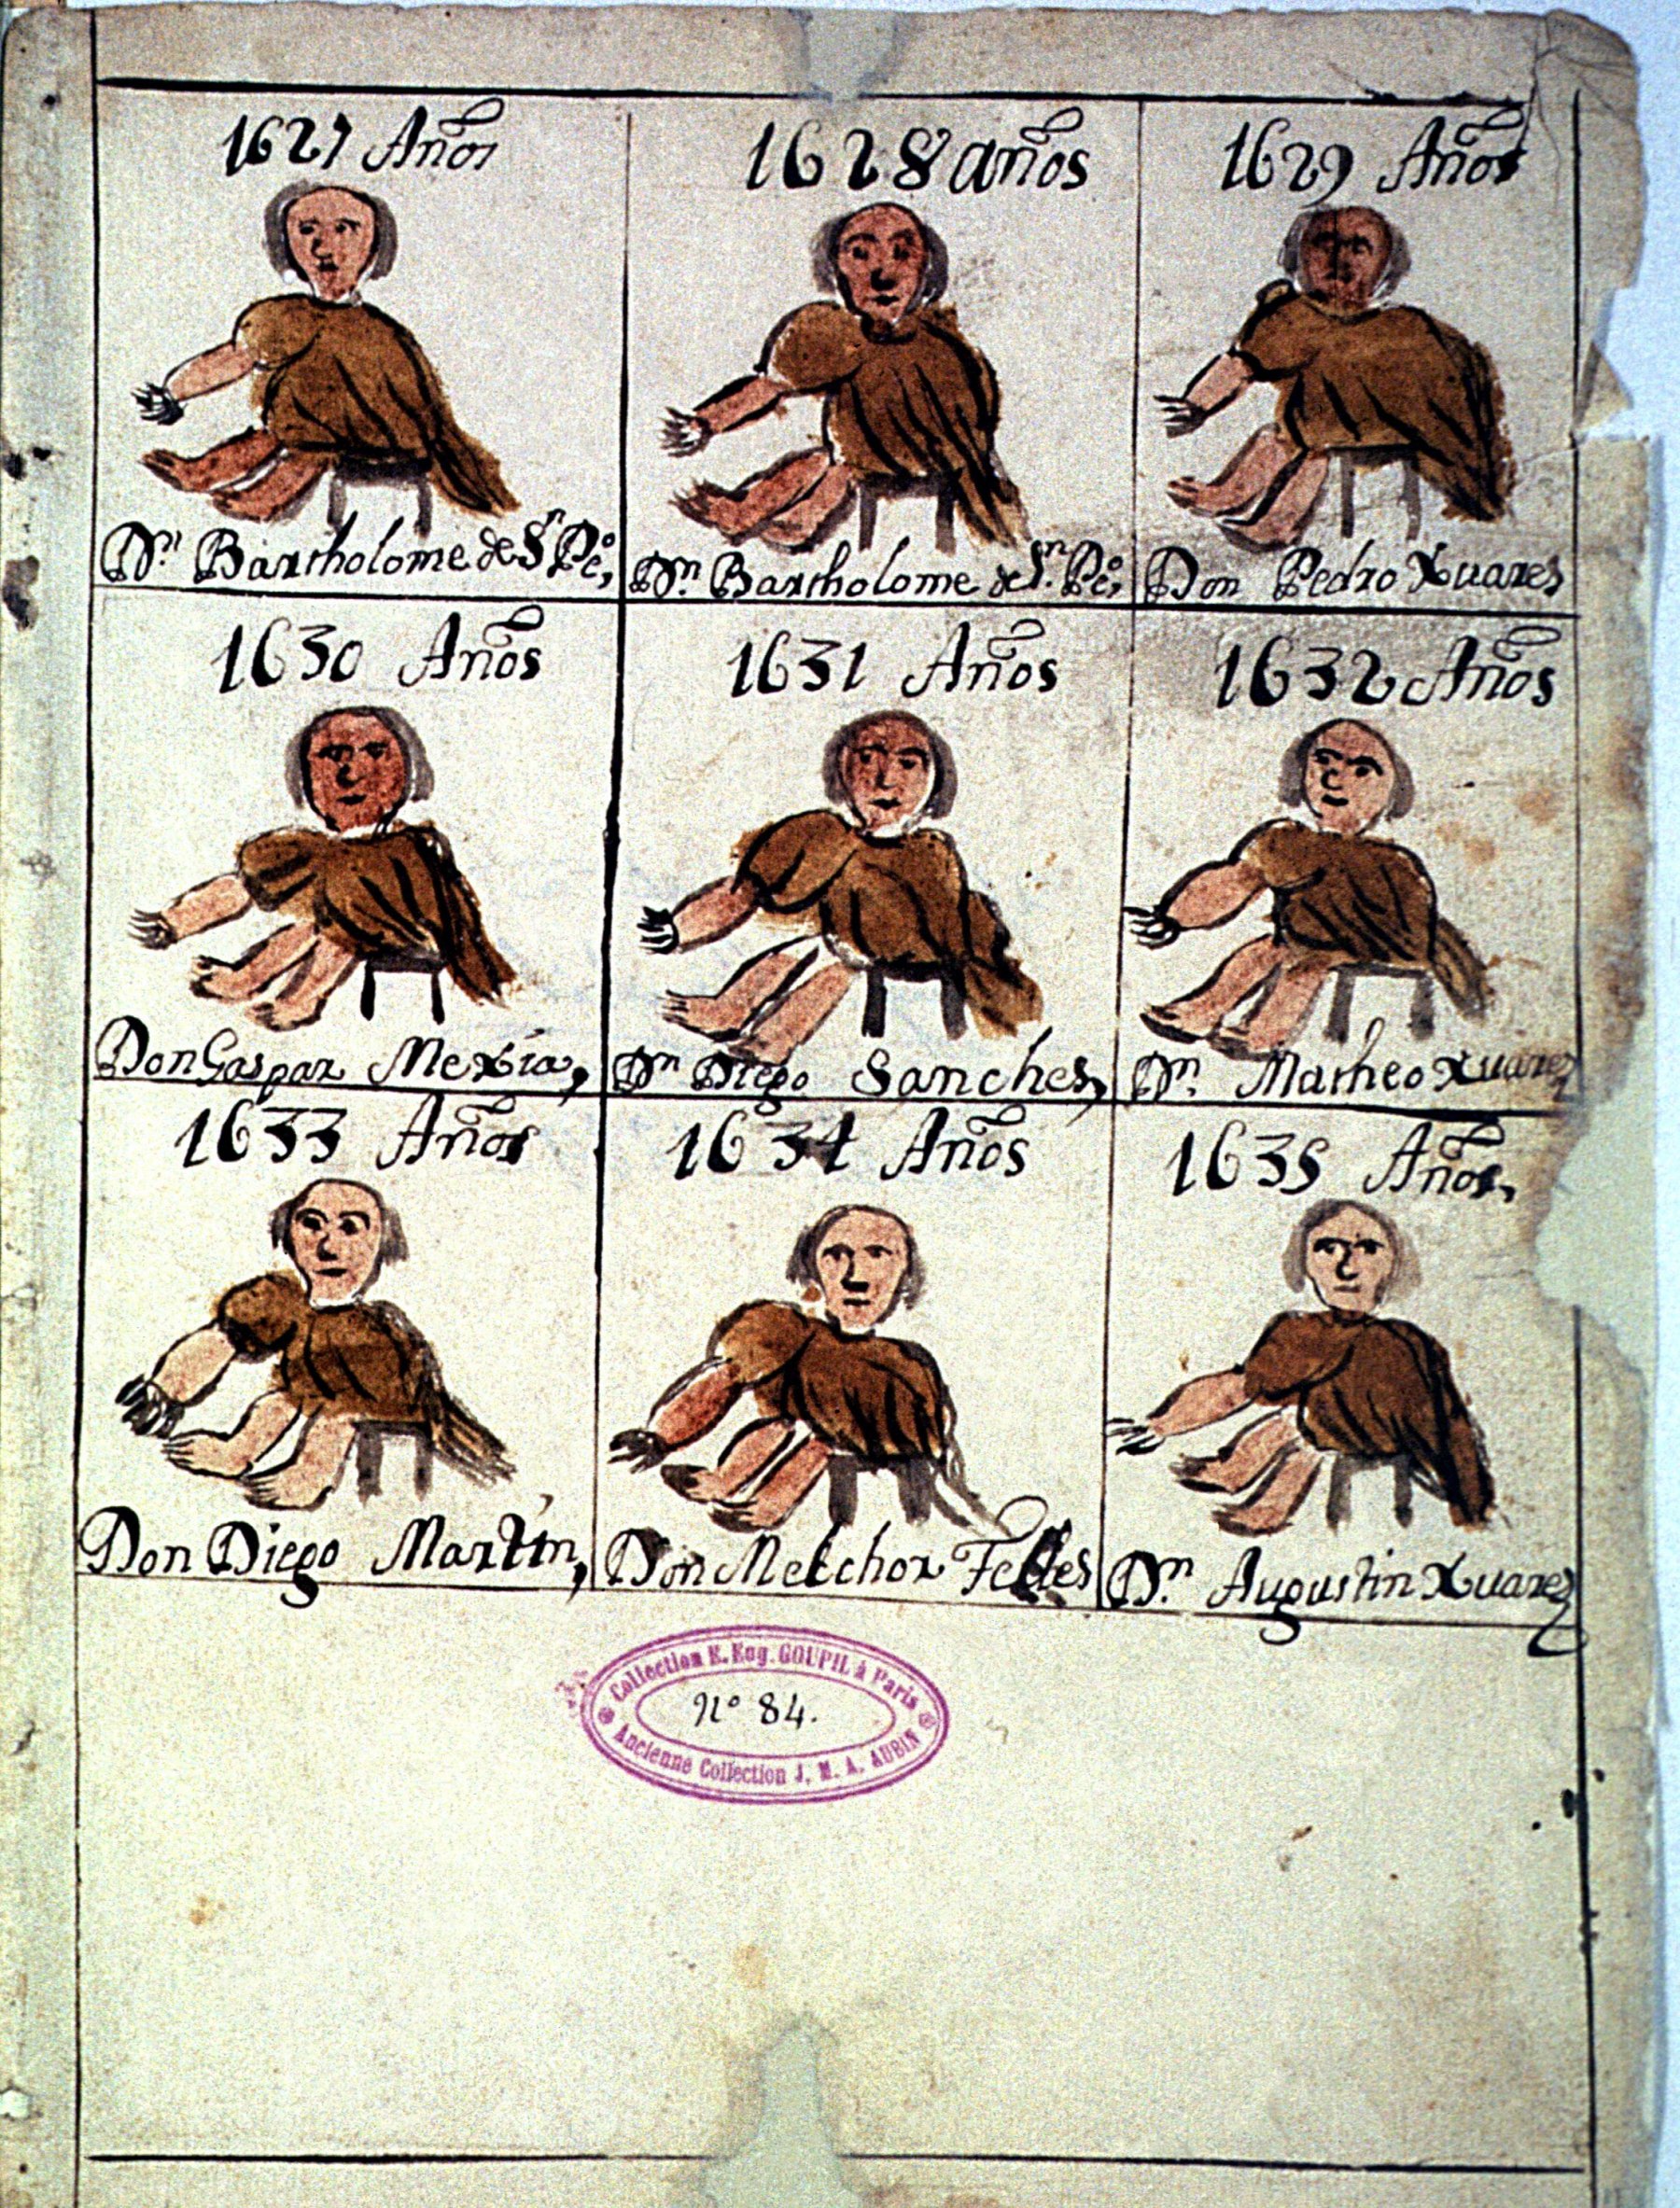 1627 Años
1628 años
1629 Años
Dn Bartholome de Sn Po,
Dn. Bartholome de Sn. Po,
Don Pedro Xuares
1630 Años
1631 Años
1632 Años
Don Gaspar Mexia,
Dn Diego Sanches,
Dn. Matheo Xuarez
1633 Años
1634 Años
1635 Años,
Don Diego Martín,
Don Melchor
Dn. Augustin Xuarez
Collection E. Eug. GOUPIL à Paris
No 84.
Ancienne Collection J. M. A. AUBIN